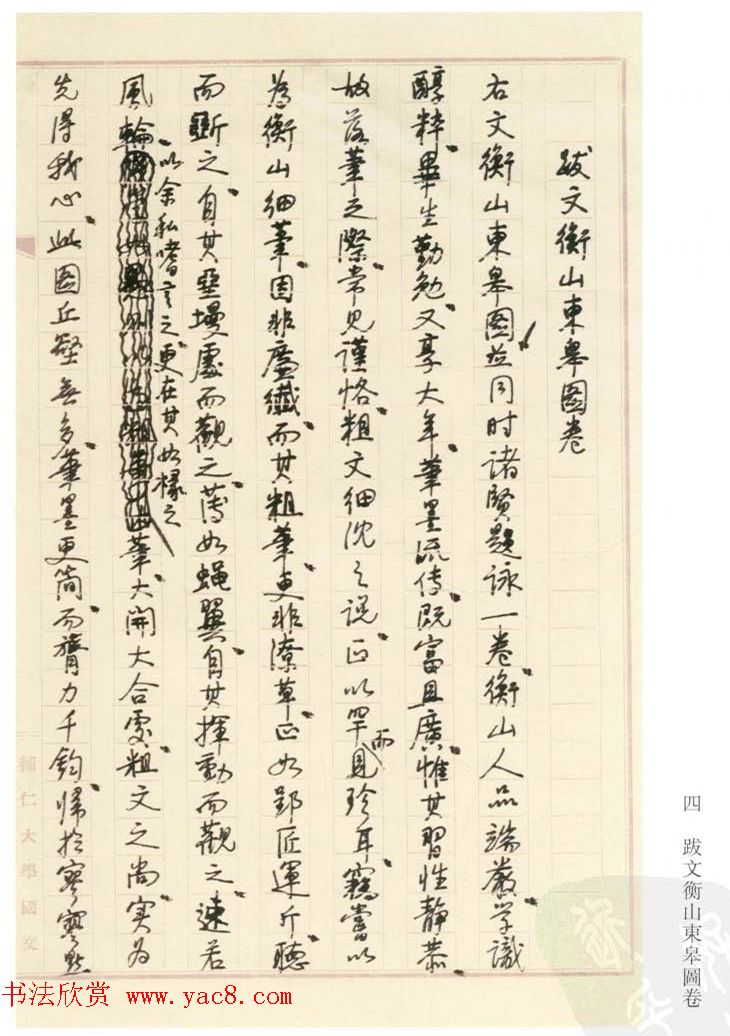 跋文衡山東皋圖卷
右文衡山東皋圖並同时諸賢題詠一卷衡山人品端嚴学識
醇粹畢生勤勉又享大年筆墨流传既富且廣惟其習性静恭
故落筆之際常見謹恪粗文细沈之説正以罕而見珍耳竊嘗以
為衡山细筆固非廑纖而其粗筆更非潦草正如郢匠運斤聽
而斲之自其堊墁處而觀之薄如蝇翼自其揮動而觀之速若
風輪以余私嗜言之更在其如椽之筆大開大合處粗文之尚实為
先得我心此圖丘壑無多筆墨更简而膂力千鈞歸於寥寥點
輔仁大學國文
四 跋文衡山東皋圖卷
书法欣赏 www.yac8.com